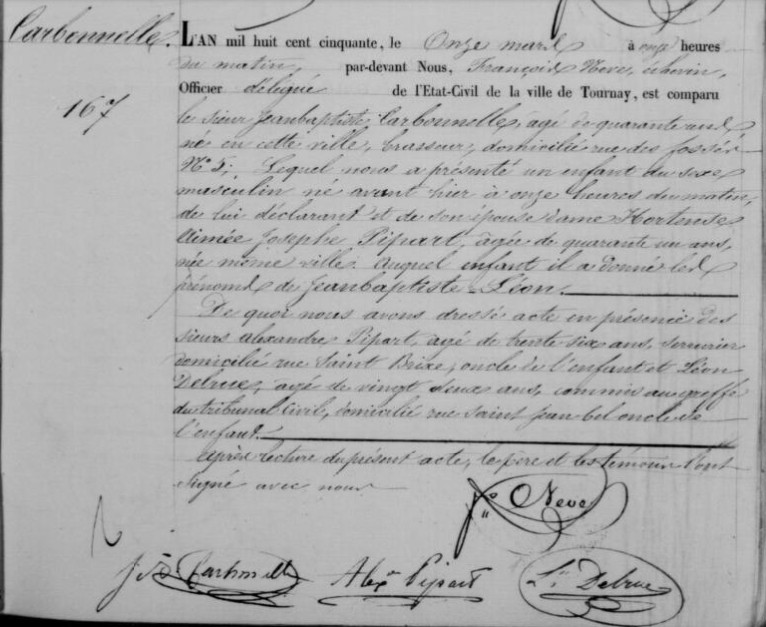 Carbonnelle.
167
L'AN mil huit cent cinquante, le Onze mars à onze heures
du matin, par-devant Nous, François Neve, échevin,
Officier délégué de l'Etat-Civil de la ville de Tournay, est comparu
le sieur Jeanbaptiste Carbonnelle, agé de quarante ans,
né en cette ville, brasseur, domicilié rue des fossés
N° 5; Lequel nous a présenté un enfant du sexe
masculin né avant hier à onze heures du matin,
de lui déclarant et de son épouse dame Hortense
Aimée Josephe Pipart, agée de quarante un ans,
née même ville. Auquel enfant il a donné les
prénoms de Jeanbaptiste Léon.
De quoi nous avons dressé acte en présence des
sieurs alexandre Pipart, agé de trente six ans, serrurier
domicilié rue Saint Brixe, oncle de l'enfant et Léon
Delrue, agé de vingt deux ans, commis au greffe
du tribunal Civil, domicilié rue Saint Jean bel oncle de
l'enfant.
Après lecture du présent acte, le père et les témoins l'ont
signé avec nous
fs Neve
Jbte Carbonnelle Alexre Pipart Ln Delrue